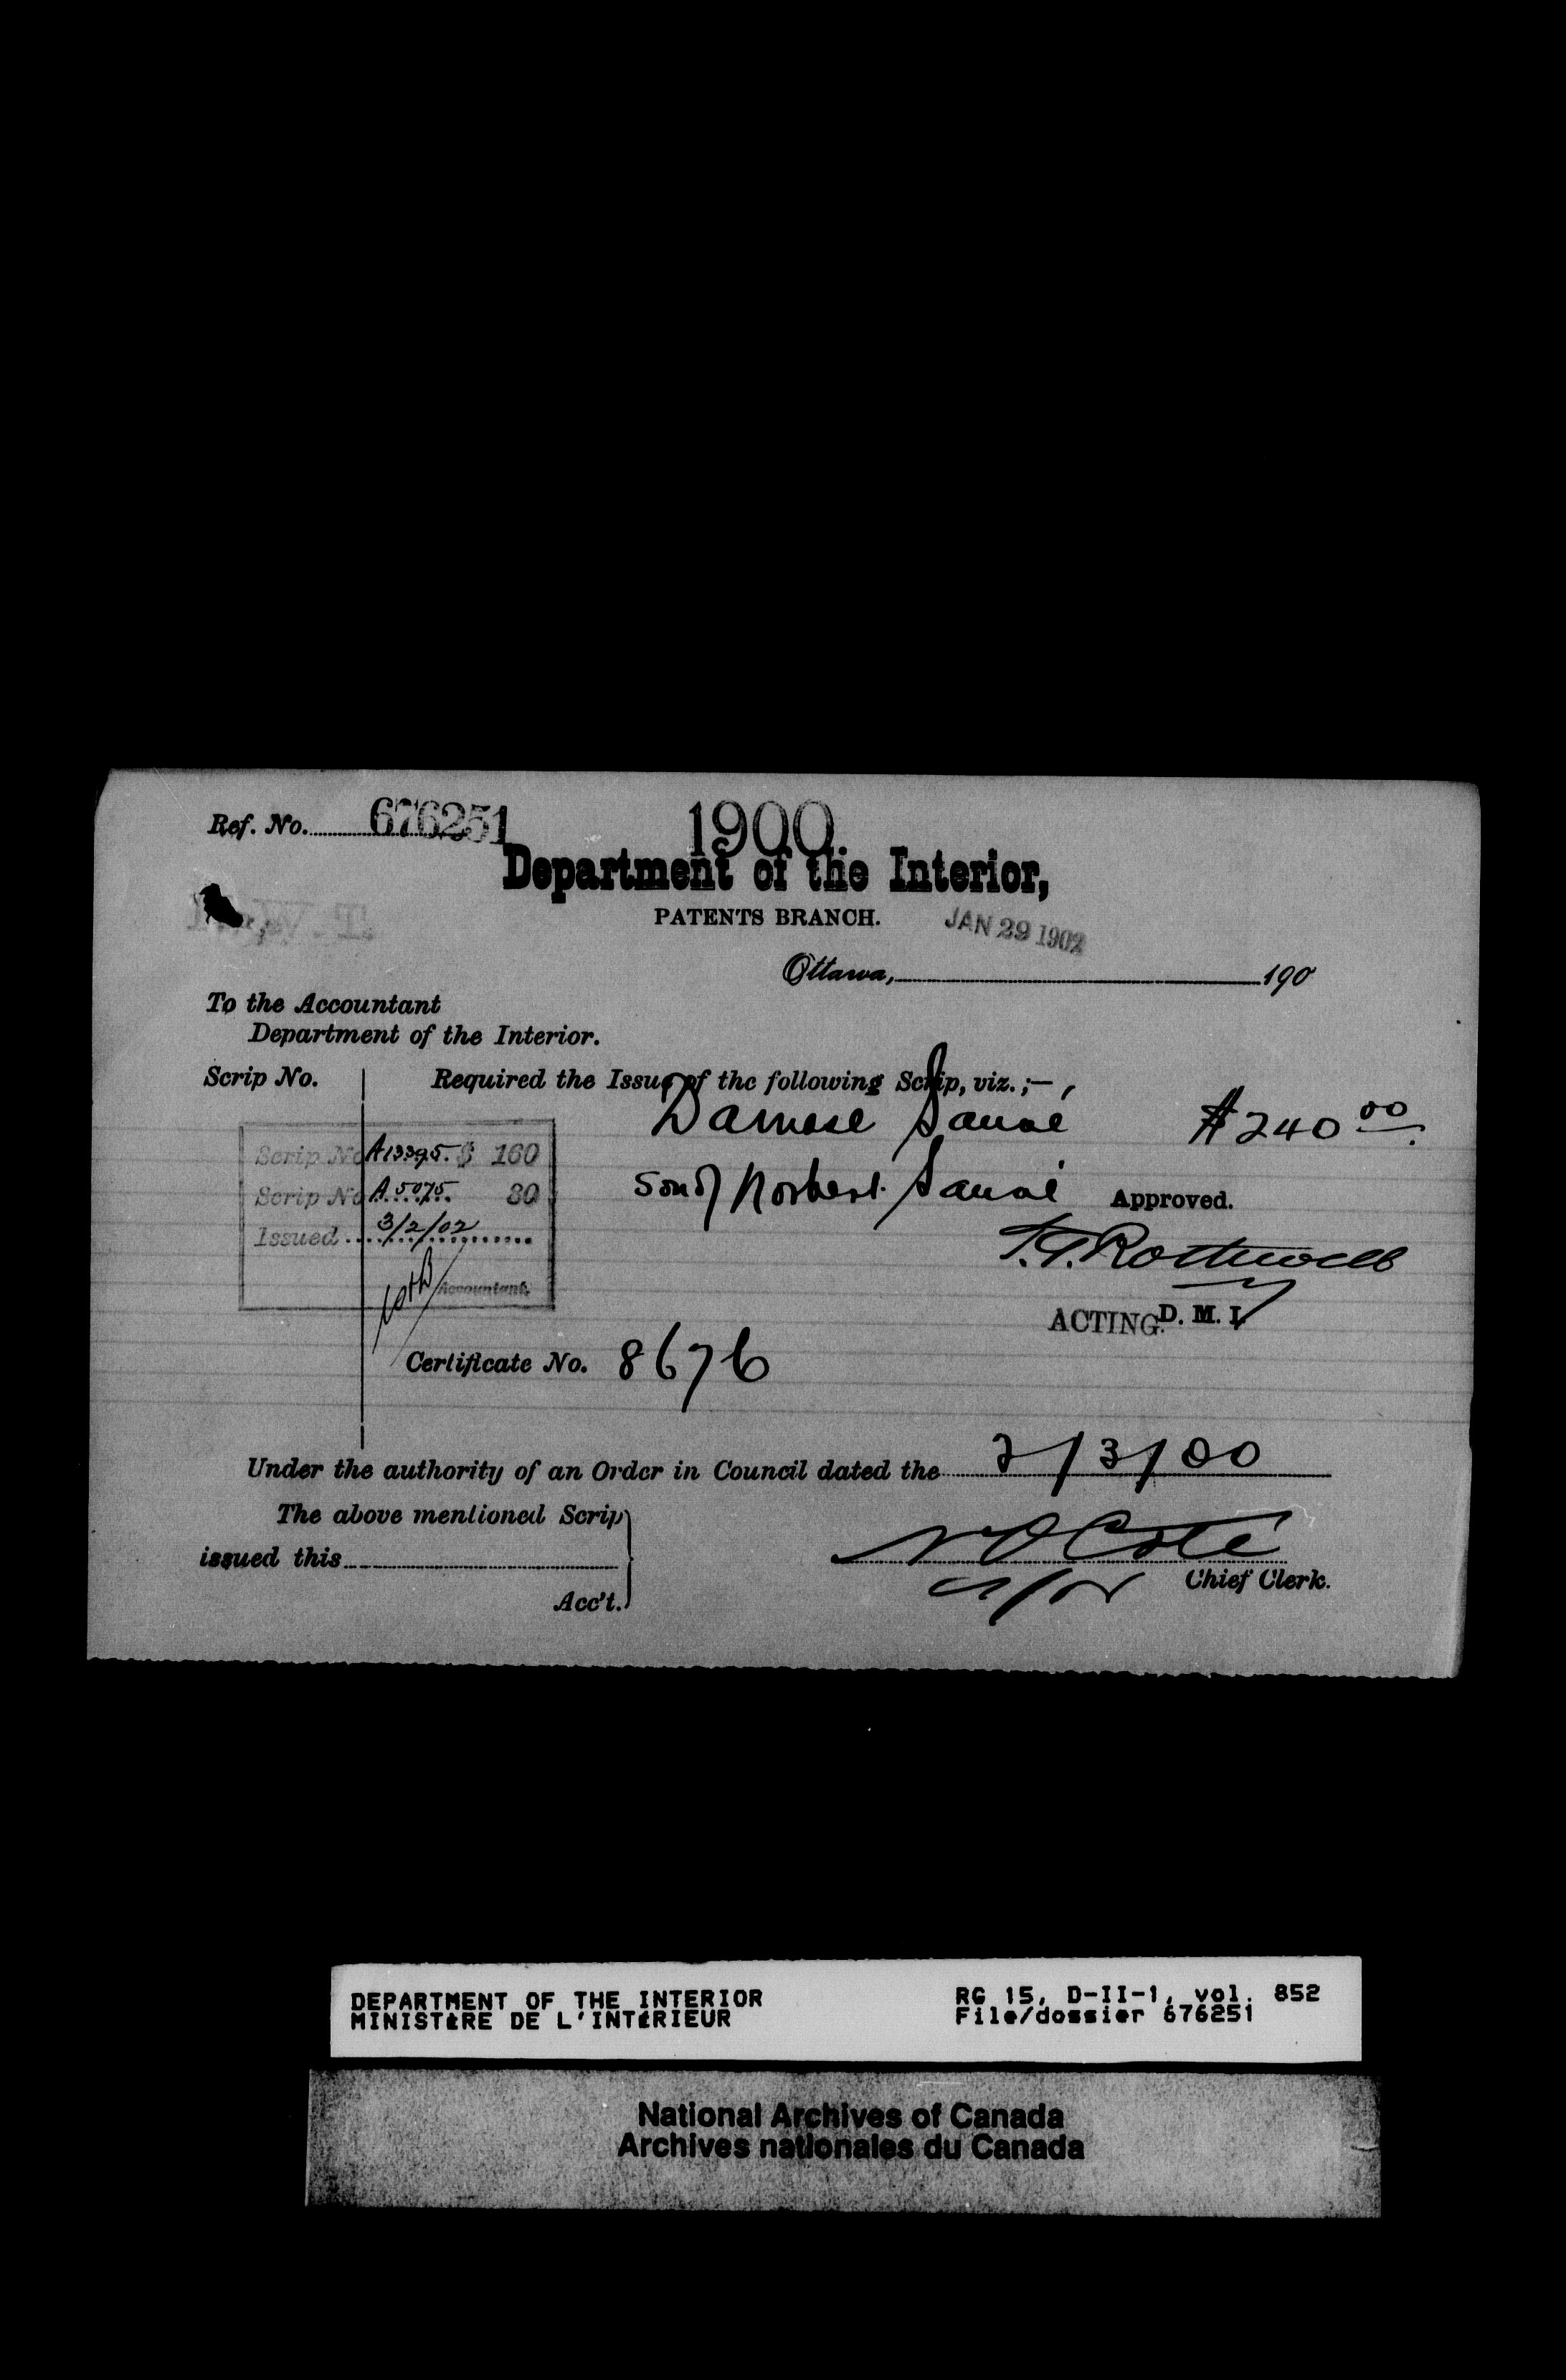 Ref. No. 676251
1900
Department of the Interior,
PATENTS BRANCH.
JAN 29 1902
Ottawa, 190
To the Accountant
Department of the Interior.
Scrip No. Required the Issue of the following Scrip, viz.;—
Damase Sauvé $240 00
Scrip No A13395. $ 160
son of Norbert Sauvé Approved.
Scrip No A5075 80
Issued 3/2/02
T.G. Rothwell
Accountant
ACTING D. M. I.
Certificate No. 8676
Under the authority of an Order in Council dated the 2/3/00
The above mentioned Scrip
issued this
N O Coté
Chief Clerk.
Acc't.
DEPARTMENT OF THE INTERIOR RG 15, D-II-1, vol. 852
MINISTÈRE DE L'INTÉRIEUR File/dossier 676251
National Archives of Canada
Archives nationales du Canada